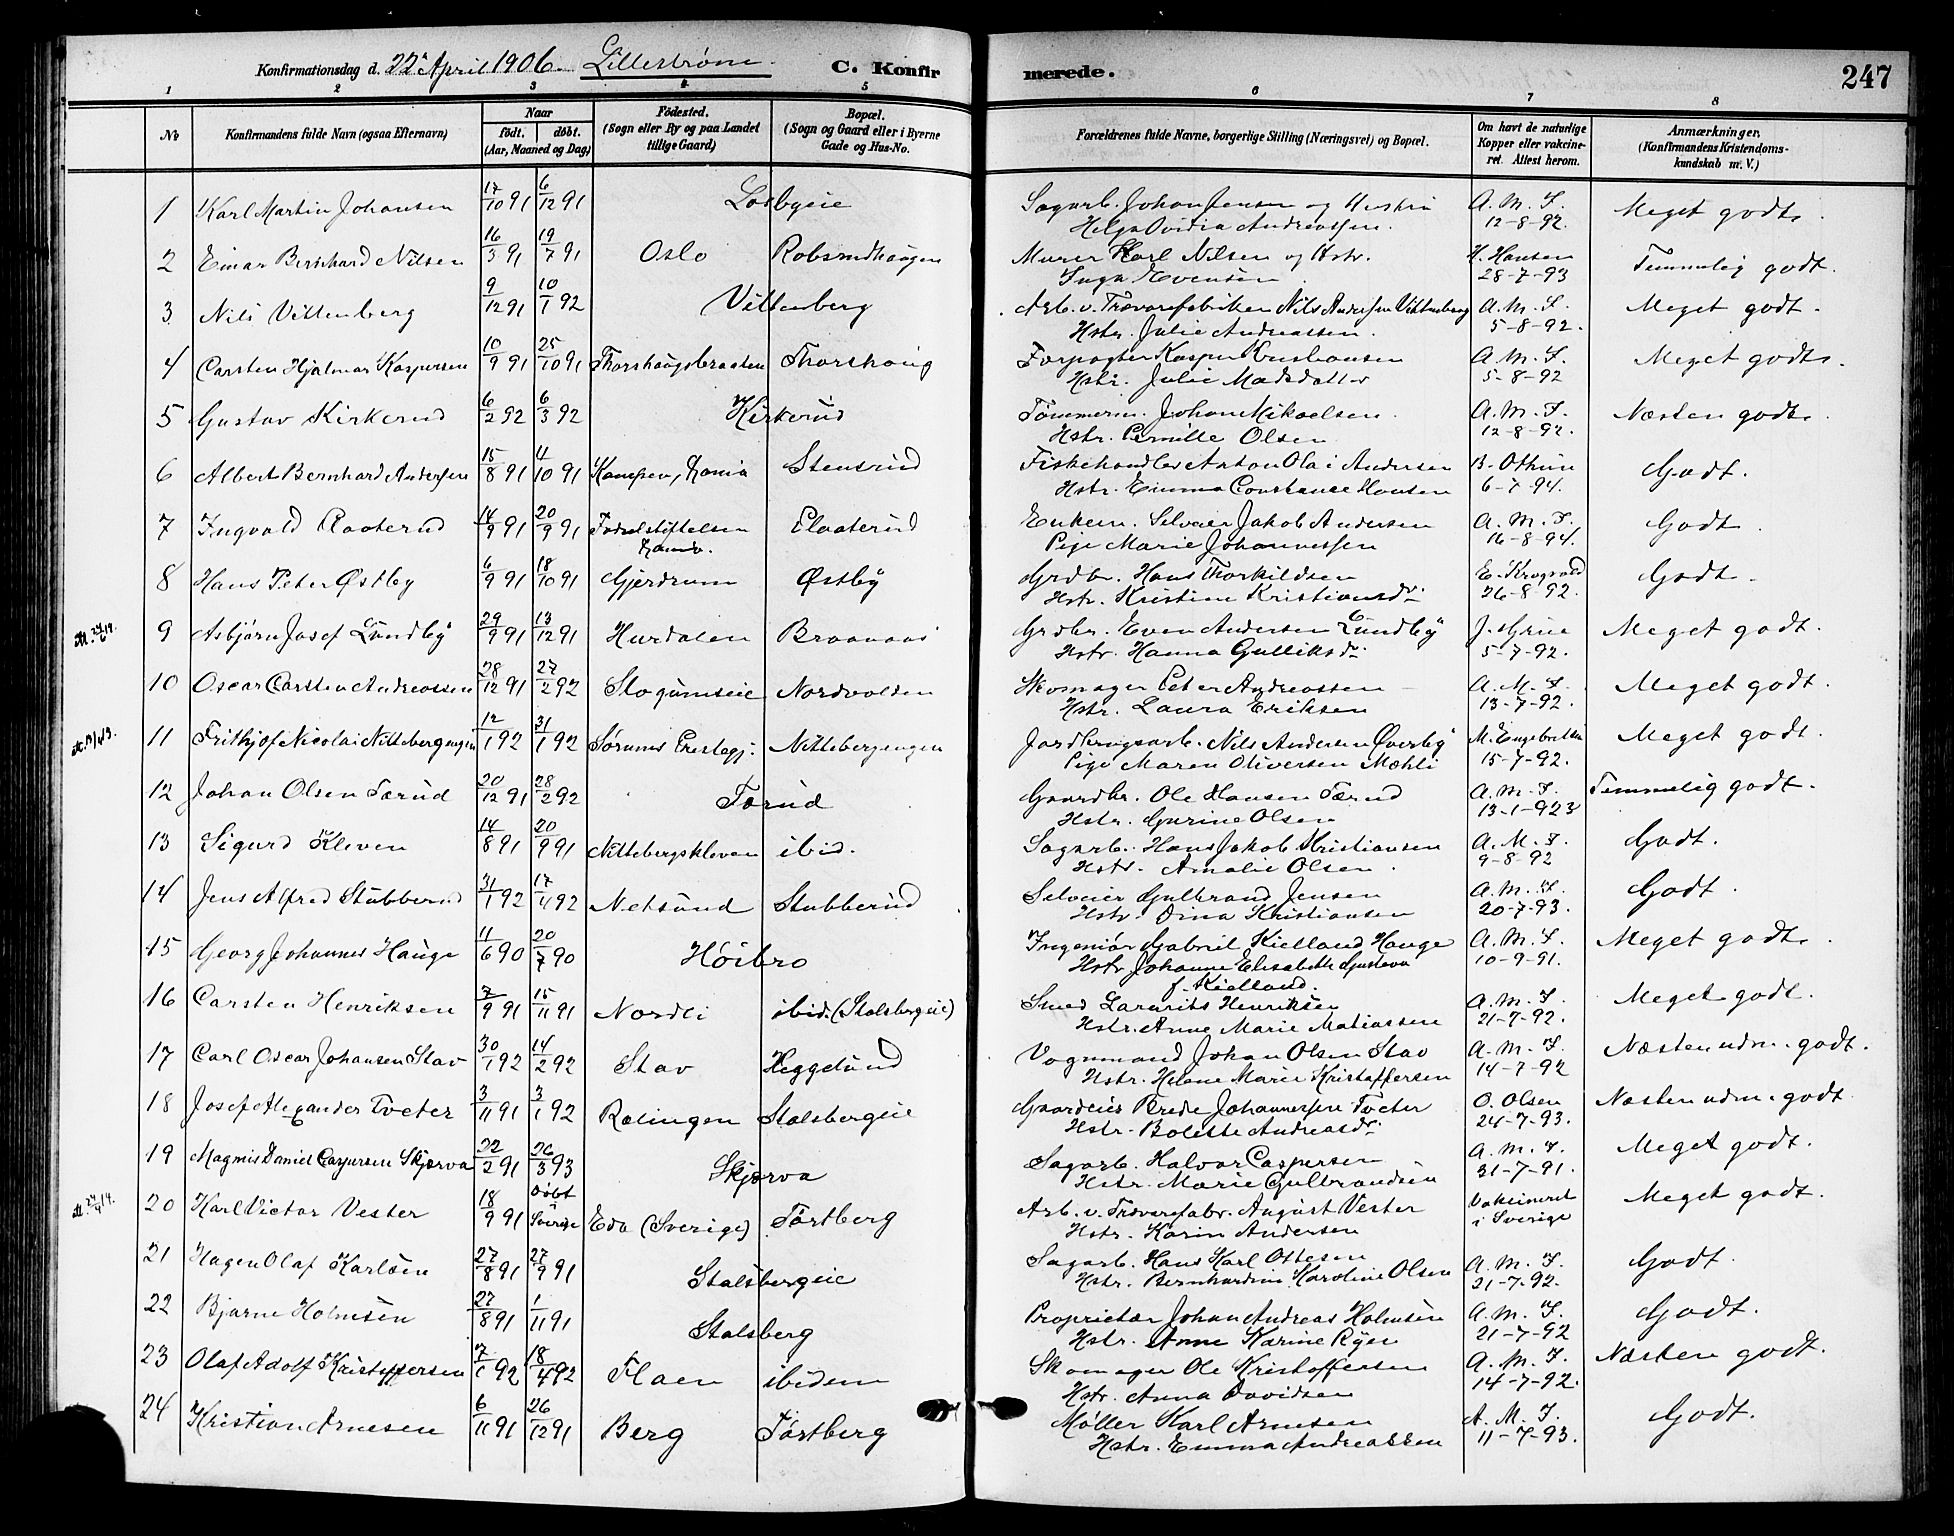 Konfirmationsdag d. 22 April 1906. Lillestrøm. C. Konfirmerede. 247
1 2 3 4 5 6 7 8
No Konfirmandens fulde Navn (ogsaa Efternavn) Naar født. døbt. (Aar, Maaned og Dag) Fødested. (Sogn eller By og paa Landet tillige Gaard) Bopæl. (Sogn og Gaard eller i Byerne Gade og Hus-No. Forældrenes fulde Navne, borgerlige Stilling (Næringsvei) og Bopæl. Om havt de naturlige Kopper eller vakcineret. Attest herom. Anmærkninger. (Konfirmandens Kristendomskundskab m. V.)
1 Karl Martin Johansen 17/10 91 6/12 91 Losbyeie Sagarb. Johan Jensen og Hustru A. M. F. Meget godt.
Helga Ovidia Andreassen. 12-8-92.
2 Einar Bernhard Nilsen 16/3 91 19/7 91 Oslo Robsrudhaugen Murer Karl Nilsen og Hstr. H. Hansen Temmelig godt.
Inga Evensen 28-7-93
3 Nils Vittenberg 9/12 91 10/1 92 Vittenberg Arb. v. Trævarefabriken Nils Andersen Vittenberg A. M. F. Meget godt.
Hstr. Julie Andreassen. 5-8-92.
4 Carsten Hjalmar Kaspersen 10/9 91 25/10 91 Thorshaugsbraaten Thorshaug Forpagter Kasper Kristiansen A. M. F. Meget godt.
Hstr. Julie Madsdatter 5-8-92
5 Gustav Kirkerud 6/2 92 6/3 92 Kirkerud Tømmerm. Johan Mikaelsen. A. M. F. Næsten godt.
Hstr. Pernille Olsen 12-8-92.
6 Albert Bernhard Andersen 15/8 91 4/10 91 Kampen, Xania Stensrud Fiskehandler Anton Olai Andersen Godt.
Hstr. Emma Constance Hansen 6-7-94.
7 Ingvald Raaterud 14/9 91 20/9 91 Fødselstiftelsen Plaaterud Enkem. Selveier Jakob Andersen A. M. F. Godt
Xania. Pige Marie Johannessen 16-8-94.
8 Hans Peter Østby 6/9 91 18/10 91 Gjerdrum Østby Grdbr. Hans Thorkildsen E. Krogvold Godt.
Hstr. Kristine Kristiansdr. 26-8-92.
9 Asbjørn Josef Lundby 29/9 91 13/12 91 Hurdalen Braanaas Grdbr. Even Andersen Lundby J. Grue Meget godt.
Hstr. Hanna Gulliksdr. 5-7-92.
10 Oscar Carsten Andreassen 28/12 91 27/2 92 Slogumseie Nordvolden Skomager Peter Andreassen A. M. F. Meget godt.
Hstr. Laura Eriksen 13-7-92.
11 Frithjof Nicolai Nittebergengen 12/1 92 31/1 92 Sørums Prestegj. Nittebergengen Jordbrugsarb. Nils Andersen Øverby M. Engebretsen Meget godt.
Pige Maren Oliversen Mæhli 15-7-92.
12 Johan Olsen Tærud 20/12 91 28/2 92 Tærud Gaardbr. Ole Hansen Tærud A. M. F. Temmelig godt.
Hstr. Gurine Olsen 13-1-923
13 Sigurd Kleven 14/8 91 20/9 91 Nittebergskleven ibid. Sagarb. Hans Jakob Kristiansen A. M. F. Godt.
Hstr. Amalie Olsen. 9-8-92
14 Jens Alfred Stubberud 31/1 92 17/4 92 Netsund Stubberud Selveier Gulbrand Jensen A. M. F. Godt.
Hstr. Dina Kristiansen 20-7-93.
15 Georg Johannes Hauge 11/6 90 20/7 90 Høibro Ingeniør Gabriel Kielland Hauge A. M. F. Meget godt.
Hstr. Johanne Elisabeth Gustava 10-9-91.
f. Kielland.
16 Carsten Henriksen 7/9 91 15/11 91 Nordli ibid. (Stalsbergeie) Smed Laurits Henriksen A. M. F. Meget godt.
Hstr. Anne Marie Matiassen 21-7-92.
17 Carl Oscar Johansen Stav 30/1 92 14/2 92 Stav Heggelund Vognmand Johan Olsen Stav A. M. F. Næsten udm. godt.
Hstr. Helene Marie Kristoffersen 14-7-92
18 Josef Alexander Tveter 3/11 91 3/1 92 Rælingen Stalsbergeie Gaardeier Brede Johannessen Tveter O. Olsen Næsten udm. godt
Hstr. Bolette Andreasdr. 24-7-93.
19 Magnus Daniel Caspersen Skjærva 22/2 91 26/3 93 Skjærva Sagarb. Halvor Caspersen A. M. F. Meget godt.
Hstr. Marie Gulbrandsen 31-7-91.
20 Karl Victor Vester 18/9 91 Døbt i Sverige Eda (Sverige) Torstberg Arb. v. Trævarefabr. August Vester Vakcineret Meget godt.
Hstr. Karin Andersen i Sverige
21 Hagen Olaf Karlsen 27/8 91 27/9 91 Stalsbergeie Sagarb. Hans Karl Ottesen A. M. F. Godt.
Hstr. Bernhardine Karoline Olsen 21-7-92.
22 Bjarne Holmsen 27/8 91 1/11 91 Stalsberg Proprietær Johan Andreas Holmsen A. M. F. Godt.
Hstr. Anne Karine Ryen 21-7-92
23 Olaf Adolf Kristoffersen 7/1 92 18/4 92 Flaen ibidem Skomager Ole Kristoffersen A. M. F. Næsten godt.
Hstr. Anna Davidsen 14-7-92.
24 Kristian Arnesen 6/11 91 26/12 91 Berg Torstberg Møller Karl Arnesen A. M. F. Godt.
Hstr. Emma Andreassen 11-7-93.